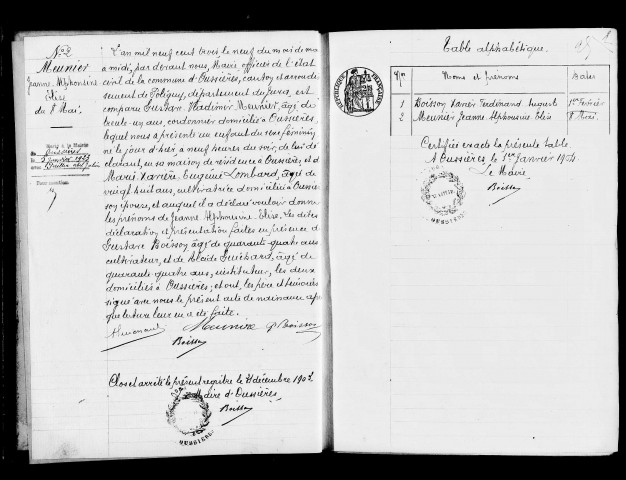 N° 2
Meunier
Jeanne Alphonsine
Elise
du 8 Mai.
L'an mil neuf cent trois le neuf du mois de mai
à midi, par devant nous, Maire officier de l'état
civil de la commune d'Oussières, canton et arrondis
sement de Poligny, département du Jura, est
comparu Gustave Vladimir Meunier, âgé de
trente-un ans, cordonnier domicilié à Oussières,
lequel nous a présenté un enfant du sexe féminin,
né le jour d'hier, à neuf heures du soir, de lui dé
clarant, en sa maison de résidence à Oussières, et de
Marie Eugénie Lombard, âgée de
vingt huit ans, cultivatrice domiciliée à Oussières
son épouse, et auquel il a déclaré vouloir donner
les prénoms de Jeanne Alphonsine Elise. Les dites
déclaration et présentation faites en présence de
Gustave Boisson âgé de quarante-quatre ans
cultivateur, et de Alcide Guichard, âgé de
quarante quatre ans, instituteur, les deux
domiciliés à Oussières; et ont, les père et témoins
signé avec nous le présent acte de naissance après
que lecture leur en a été faite.
Meunier G. Boisson
Boisson
Clos et arrêté le présent registre le 31 décembre 1903.
Maire d'Oussières,
Boisson
Table alphabétique.
Nos Noms et prénoms Dates
1 Boisson Xavier Ferdinand August 1er Février
2 Meunier Jeanne Alphonsine Elise 8 Mai
Certifiée exacte la présente table
A Oussières, le 1er Janvier 1904
Le Maire,
Boisson
RÉPUBLIQUE FRANÇAISE